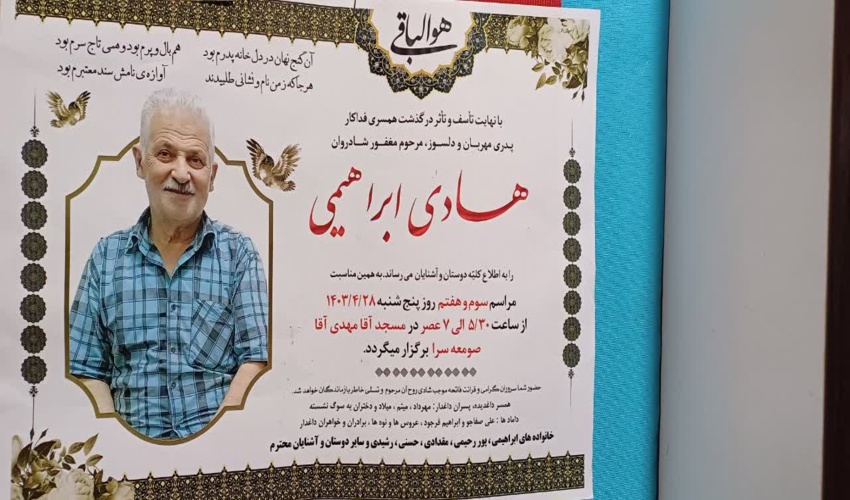 هوالباقی
آن گنج نهان در دل خانه پدرم بود
هم بال و پرم بود و مسی تاج سرم بود
هر جا که ز من نام و نشانی طلبیدند
آوازه‌ی نامش سند معتبرم بود
با نهایت تأسف و تأثر درگذشت همسری فداکار
پدری مهربان و دلسوز، مرحوم مغفور شادروان
هادی ابراهیمی
را به اطلاع کلیّه دوستان و آشنایان می رساند. به همین مناسبت
مراسم سوم و هفتم روز پنج شنبه ۱۴۰۳/۴/۲۸
از ساعت ۵/۳۰ الی ۷ عصر در مسجد آقا مهدی آقا
صومعه سرا برگزار میگردد.
حضور شما سروران گرامی و قرائت فاتحه موجب شادی روح آن مرحوم و تسلی خاطر بازماندگان خواهد شد.
همسر داغدیده، پسران داغدار : مهرداد ، میثم ، میلاد و دختران به سوگ نشسته
داماد ها : علی صفاجو و ابراهیم فرجود ، عروس ها و نوه ها ، برادران و خواهران داغدار
خانواده های ابراهیمی ، پور رحیمی ، مقدادی ، حسنی ، رشیدی و سایر دوستان و آشنایان محترم